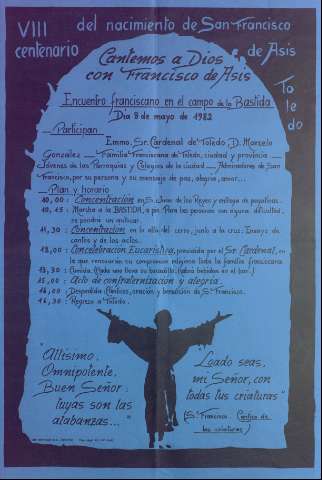 VIII centenario del nacimiento de San Francisco de Asis
Toledo
Cantemos a Dios
con Francisco de Asis
Encuentro franciscano en el campo de la Bastida
Dia 8 de mayo de 1982
Participan
Emmo. Sr. Cardenal de Toledo, D. Marcelo
González — Familia Franciscana de Toledo, ciudad y provincia —
Jóvenes de las Parroquias y Colegios de la ciudad — Admiradores de San
Francisco, por su persona y su mensaje de paz, alegria, amor...
Plan y horario
10,00: Concentración en S. Juan de los Reyes y entrega de pegatinas.
10,45: Marcha a la BASTIDA, a pie. Para las personas con alguna dificultad,
se pondrá un autocar.
11,30: Concentración en lo alto del cerro, junto a la cruz. Ensayo de
cantos y de los actos.
12,00: Concelebración Eucaristica, presidida por el Sr. Cardenal, en
la que renovarán su compromiso religioso toda la familia franciscana.
13,30: Comida. (Cada uno lleva su bocadillo. Habrá bebidas en el bar.)
15,00: Acto de confraternización y alegria.
16,00: Despedida. Cánticos, oración y bendición de S. Francisco.
16,30: Regreso a Toledo.
"Altísimo,
Omnipotente,
Buen Señor:
tuyas son las
alabanzas..."
Loado seas,
mi Señor, con
todas tus criaturas"
(S. Francisco. Cántico de
las criaturas)